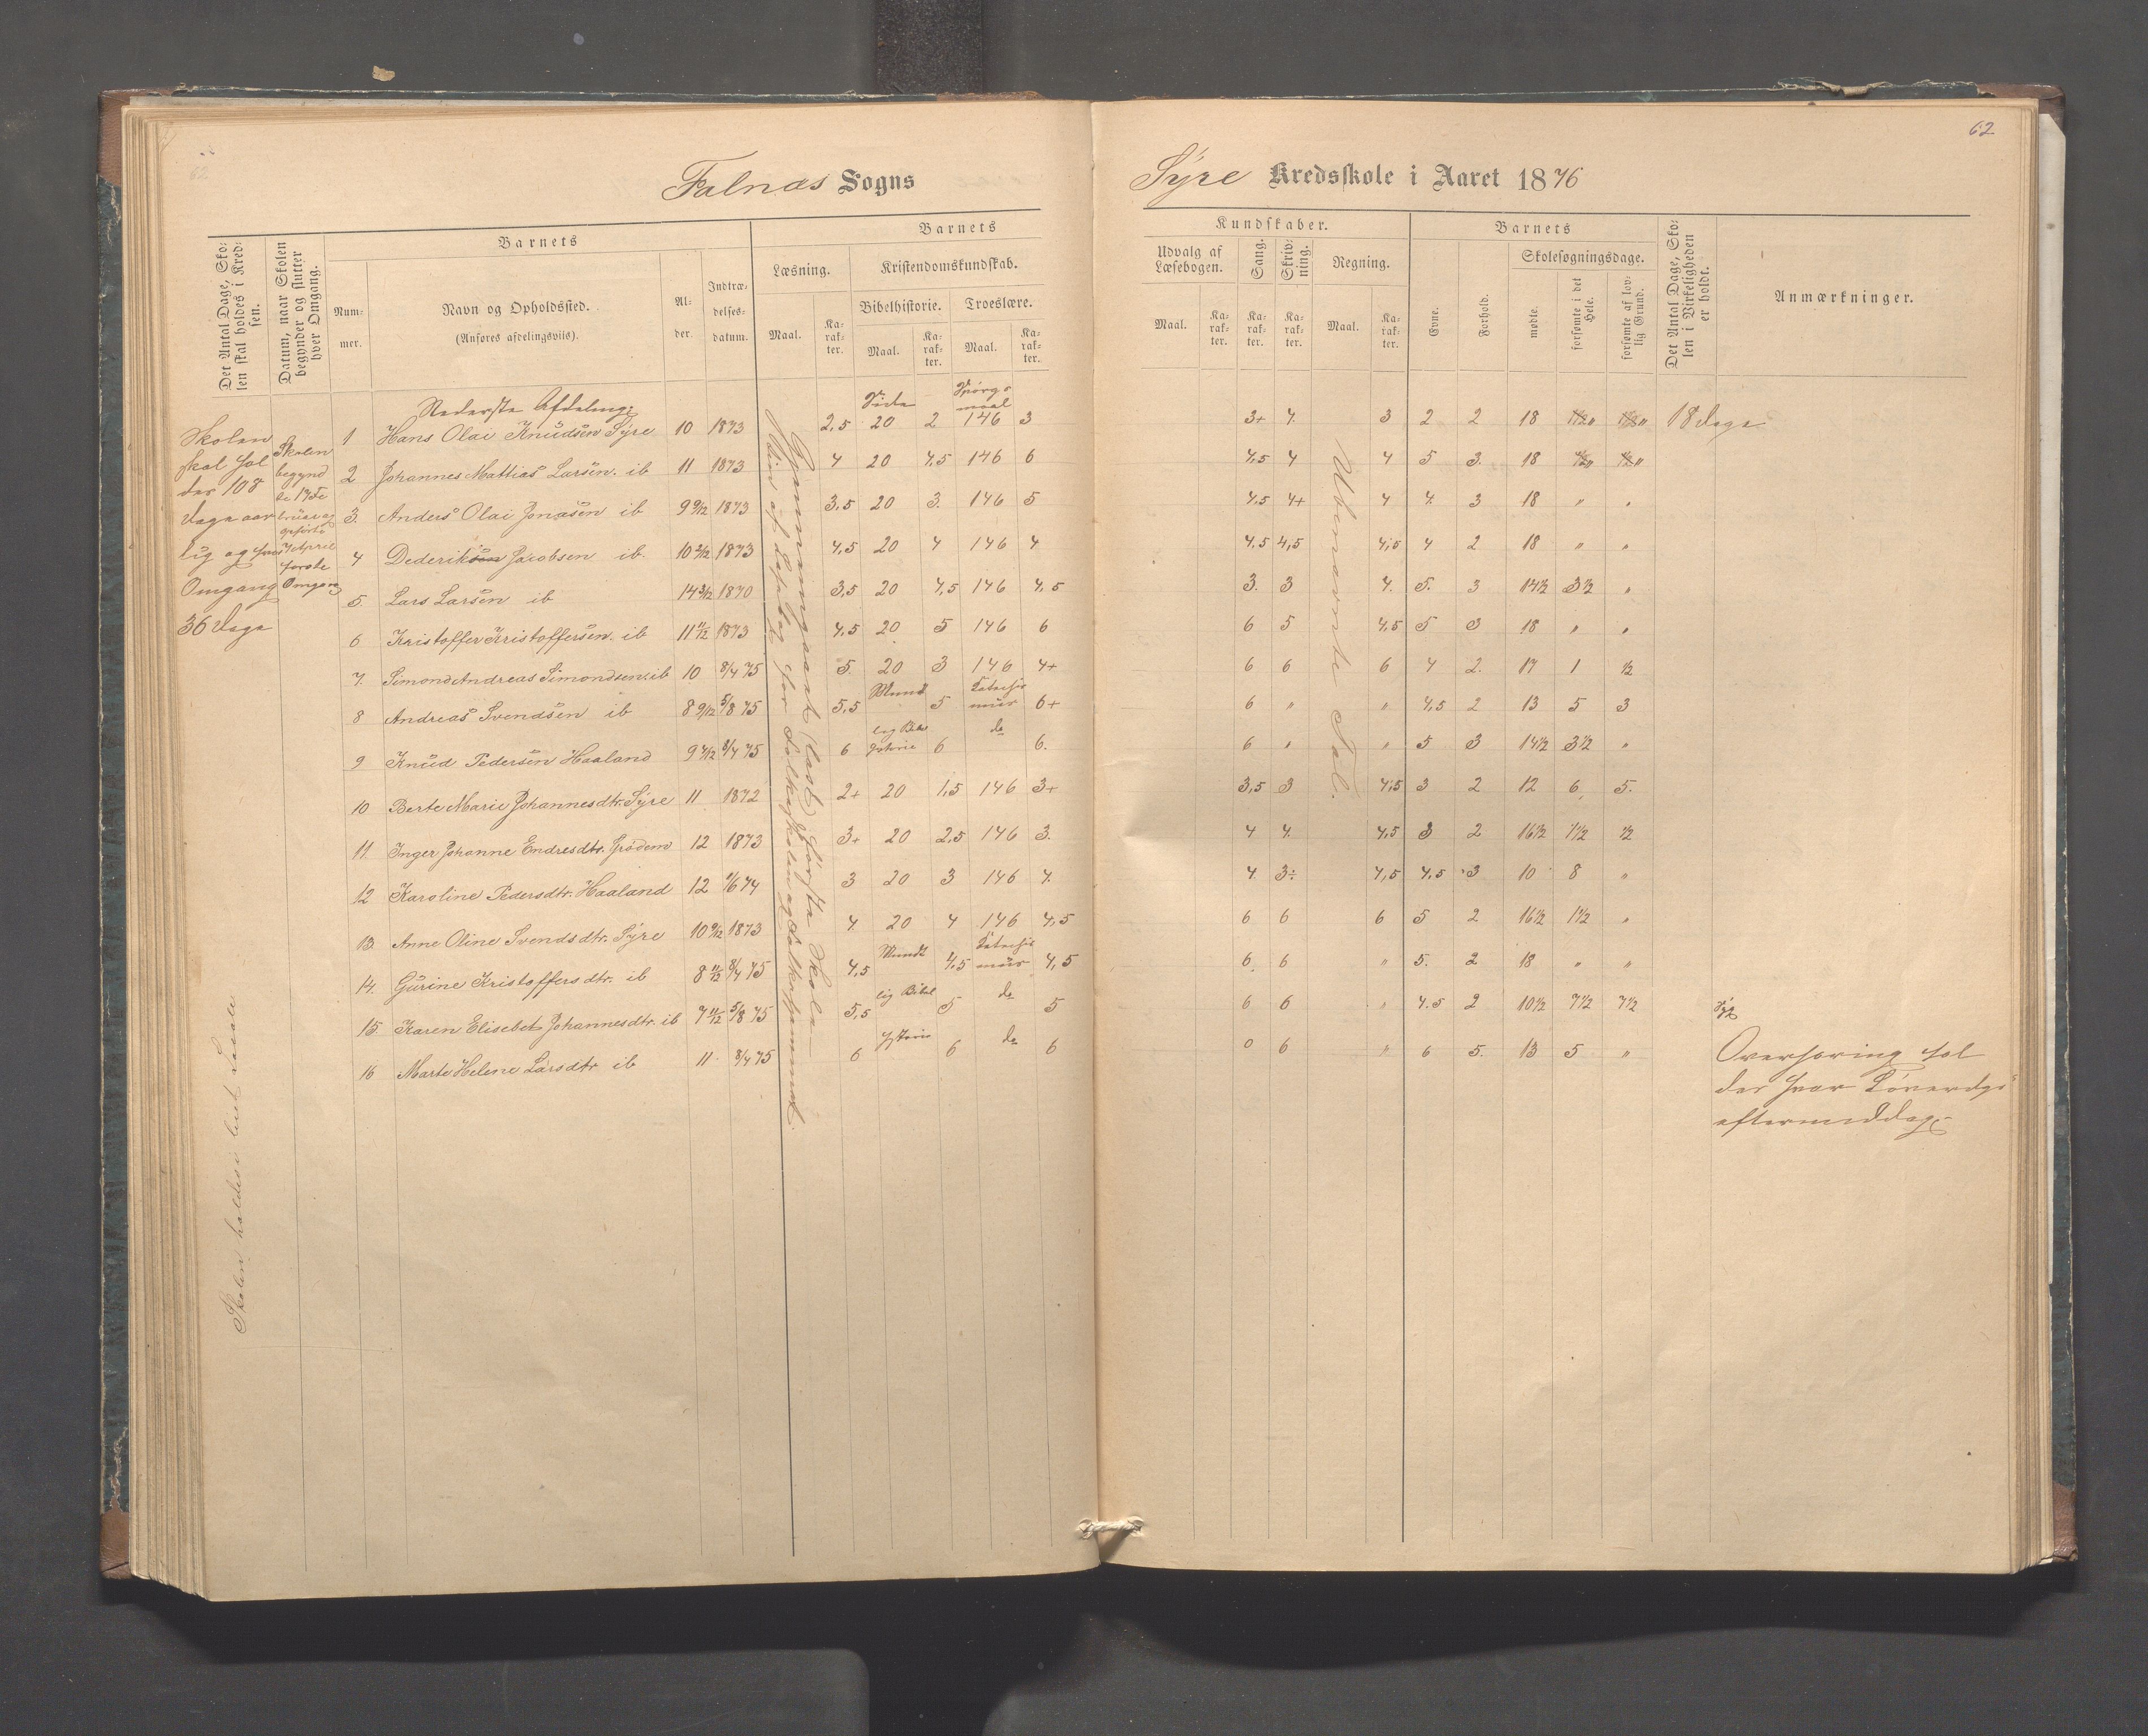 62
62
Falnæs Sogns
Syre Kredsskole i Aaret 1876
Det Antal Dage, Skolen skal holdes i Kredsen.
Datum, naar Skolen begynder og slutter hver Omgang.
Barnets
Nummer.
Navn og Opholdssted.
(Anføres afdelingsviis).
Alder.
Indtrædelsesdatum.
Barnets
Læsning.
Maal.
Karakter.
Kristendomskundskab.
Bibelhistorie.
Maal.
Karakter.
Troeslære.
Maal.
Karakter.
Kundskaber.
Udvalg af Læsebogen.
Maal.
Karakter.
Sang.
Karakter.
Skrivning.
Karakter.
Regning.
Maal.
Karakter.
Barnets
Evne.
Forhold.
Skolesøgningsdage.
mødte.
forsømte i det Hele.
forsømte af lovlig Grund.
Det Antal Dage, Skolen i Virkeligheden er holdt.
Anmærkninger.
Skolen
skal hol
des 108
Dage aar
lig og hver
Omgang
36 Dage
Skolen
begynd
te 19de
april
første
Omgang
Skolen holdes i leiet Locale
Nederste Afdeling:
Side
Spørgs
maal
1 Hans Olai Knudsen Syre 10 1873 2,5 20 2 146 3 3+ 4. 3 2 2 18 " " 18 Dage
2 Johannes Mattias Larsen. ib 11 1873 4 20 4,5 146 6 4,5 4 4 5 3. 18 " "
3. Anders Olai Jonasen ib 9 9/12 1873 3,5 20 3. 146 5 4,5 4+ 4 4. 3 18 " "
4 Dederik Jacobsen ib. 10 2/12 1873 4,5 20 4 146 4 4.5 4,5 4,5 4 2 18 " "
5. Lars Larsen ib 14 3/12 1870 3,5 20 4,5 146 4,5 3. 3 4. 5. 3 14½ 3½ "
6 Kristoffer Kristoffersen. ib 11 11/12 1873 4,5 20 5 146 6 6 5 4,5 5 3 18 " "
7. Simond Andreas Simondsen. ib 10 8/4 75 5. 20 3 146 4+ 6 6 6 4 2. 17 1 ½
8 Andreas Svendsen ib 8 9/12 5/8 75 5,5 Mund 5 Katechis mus 6+ 6 " " 4,5 2 13 5 3
9 Knud Pedersen Haaland 9 4/12 8/4 75 6 6 do 6. 6 " " 5 3 14½ 3½ "
10 Berte Marie Johannesdtr. Syre 11 1872 2+ 20 1,5 146 3+ 3,5 3 4,5 3 2 12 6 5.
11. Inger Johanne Endresdtr. Grødem 12 1873 3+ 20 2,5 146 3. 4 4. 4,5 3 2 16½ 1½ ½
12 Karoline Pedersdtr. Haaland 12 1/6 74 3 20 3 146 4. 4. 3÷ 4,5 4,5 3 10 8 "
13. Anne Oline Svendsdtr. Syre 10 9/12 1873 4. 20 4 146 4,5 6 6 6 5 2 16½ 1½ "
14. Gurine Kristoffersdtr. ib 8 11/12 8/4 75 4,5 Mundt 4,5 Katechis mus 4,5 6. 6 " 5. 2 18 " "
15. Karen Elisebet Johannesdtr. ib 7 11/12 5/8 75 5,5 lig Bibel 5 do 5 6 6 " 4.5 2 10½ 7½ 7½ Syg
16 Marte Helene Larsdtr ib 11 8/4 75 6 hstorie 6 do 6 0 6 " 6 5. 13 5 "
Ubenævnte Tal.
Overhøring hol
des hver Løverdgs
eftermiddag.